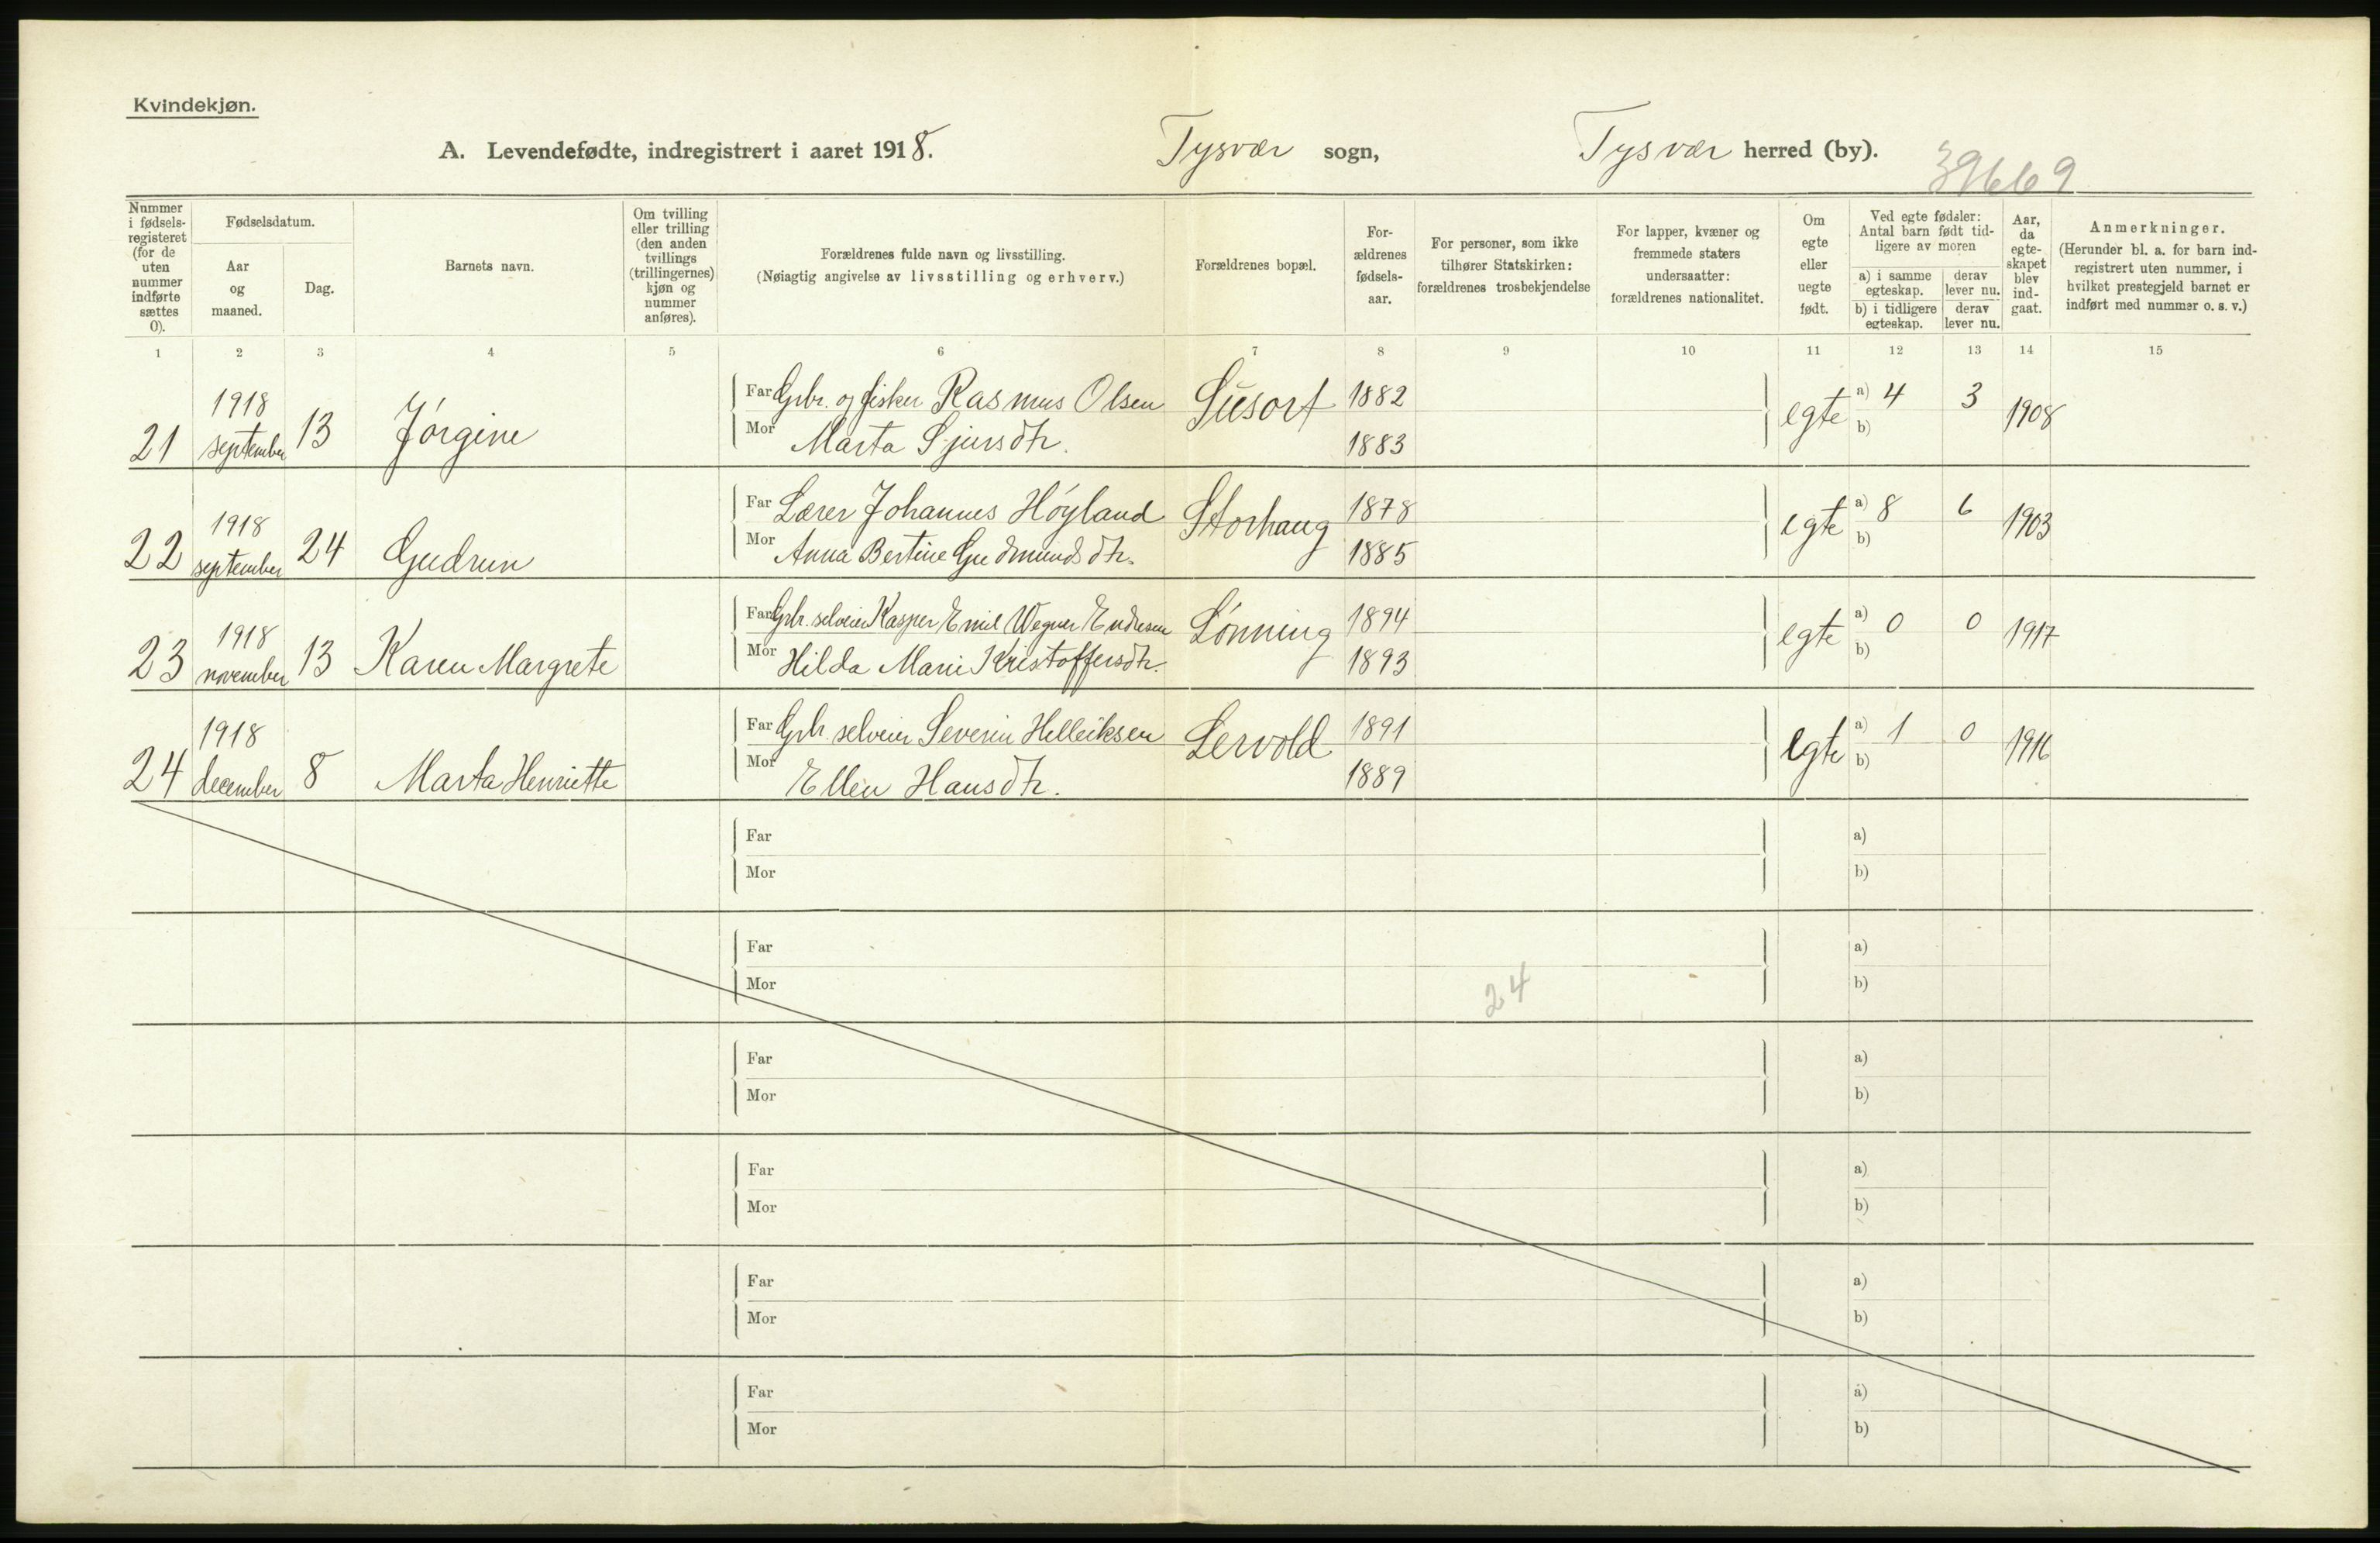 Kvindekjøn.
A. Levendefødte, indregistrert i aaret 1918. Tysvær sogn, Tysvær herred (by).
39669
Nummer i fødsels-registeret (for de uten nummer indførte sættes 0).
Fødselsdatum.
Aar og maaned.
Dag.
Barnets navn.
Om tvilling eller trilling (den anden tvillings (trillingernes) kjøn og nummer anføres).
Forældrenes fulde navn og livsstilling.
(Nøiagtig angivelse av livsstilling og erhverv.)
Forældrenes bopæl.
For-ældrenes fødsels-aar.
For personer, som ikke tilhører Statskirken: forældrenes trosbekjendelse
For lapper, kvæner og fremmede staters undersaatter: forældrenes nationalitet.
Om egte eller uegte født.
Ved egte fødsler: Antal barn født tid-ligere av moren
a) i samme egteskap. derav lever nu.
b) i tidligere egteskap. derav lever nu.
Aar, da egte-skapet blev ind-gaat.
Anmerkninger.
(Herunder bl. a. for barn ind-registrert uten nummer, i hvilket prestegjeld barnet er indført med nummer o. s. v.)
1 2 3 4 5 6 7 8 9 10 11 12 13 14 15
21 1918 september 13 Jórgine Far Grbr. og fisker Rasmus Olsen Susort 1882 egte a) 4 3 1908
Mor Marta Sjursdtr. 1883 b)
22 1918 september 24 Gudrun Far Lærer Johannes Hóyland Storhaug 1878 egte a) 8 6 1903
Mor Anna Bertine Gudmundsdtr. 1885 b)
23 1918 november 13 Karen Margrete Far Grbr. selveier Kasper Emil Wegner Endresen Lónning 1894 egte a) 0 0 1917
Mor Hilda Marie Kristoffersdtr. 1893 b)
24 1918 december 8 Marta Henriette Far Grbr. selveier Severin Helleiksen Lervold 1891 egte a) 1 0 1916
Mor Ellen Hansdtr. 1889 b)
Far a)
Mor b)
Far a)
Mor 24 b)
Far a)
Mor b)
Far a)
Mor b)
Far a)
Mor b)
Far a)
Mor b)